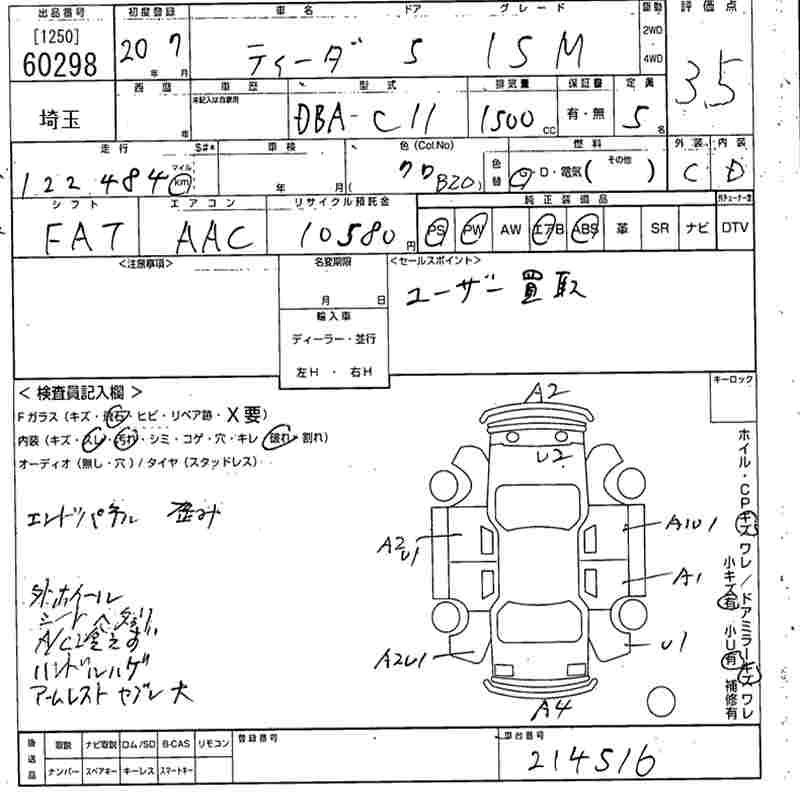 出品番号 初度登録 車名 ドア グレード 駆動 評価点
[1250]
60298
20 7
年 月
ティーダ 5 15M
2WD
4WD
3.5
埼玉
西暦
年
車歴
未記入は自家用
型式
DBA-C11
排気量
1500 CC
保証書
有・無
定員
5 名
走行 S#*
122,484
マイル
km
車検
年 月
色(Col.No)
クロ
(BZ0)
色替
燃料
G・D・電気( その他 )
外装 内装
C D
シフト
FAT
エアコン
AAC
リサイクル預託金
10580 円
純正装備品
PS PW AW エアB ABS 革 SR ナビ DTV
<注意事項>
名変期限
月 日
輸入車
ディーラー・並行
左H・右H
<セールスポイント>
ユーザー買取
<検査員記入欄>
Fガラス(キズ・飛石・ヒビ・リペア跡・X要)
内装(キズ・スレ・汚れ・シミ・コゲ・穴・キレ・破れ・割れ)
オーディオ(無し・穴)/タイヤ(スタッドレス)
エンドパネル 歪み
外ホイール
シート
A/C冷えず
ハンドルハゲ
アームレスト ヤブレ大
キーロック
A2
U2
A2
U1
A1U1
A1
A2U1
U1
A4
ホイル・CPキズ ワレ/ドアミラーキズ ワレ
小キズ有 小U有 補修有
後送品
取説 ナビ取説 ロム/SD B-CAS リモコン
ナンバー スペアキー キーレス スマートキー
登録番号
車台番号
214516